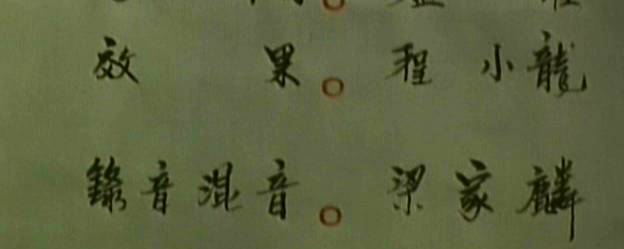 效果。程小龍
錄音混音。梁家麟